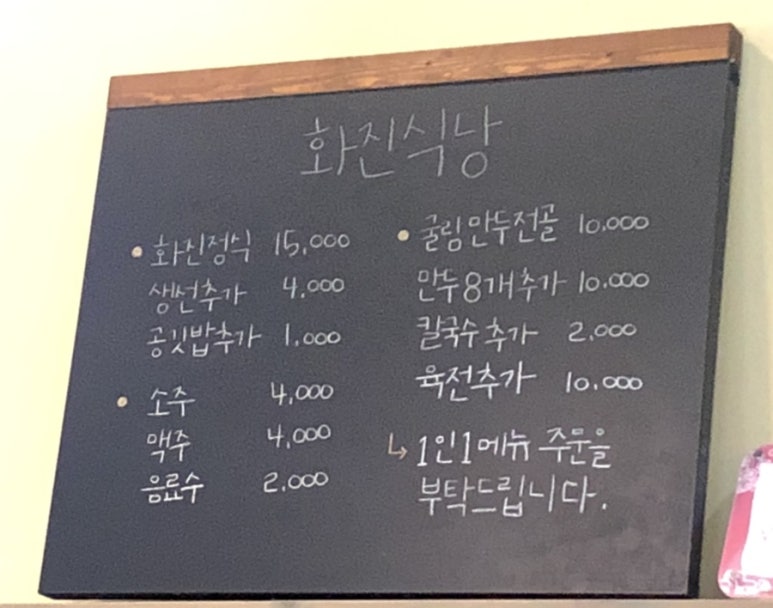 화진식당
• 화진정식 15,000
생선추가 4,000
공깃밥추가 1,000
• 소주 4,000
맥주 4,000
음료수 2,000
• 굴림만두전골 10,000
만두8개추가 10,000
칼국수 추가 2,000
육전추가 10,000
↳ 1인1메뉴 주문을
부탁드립니다.